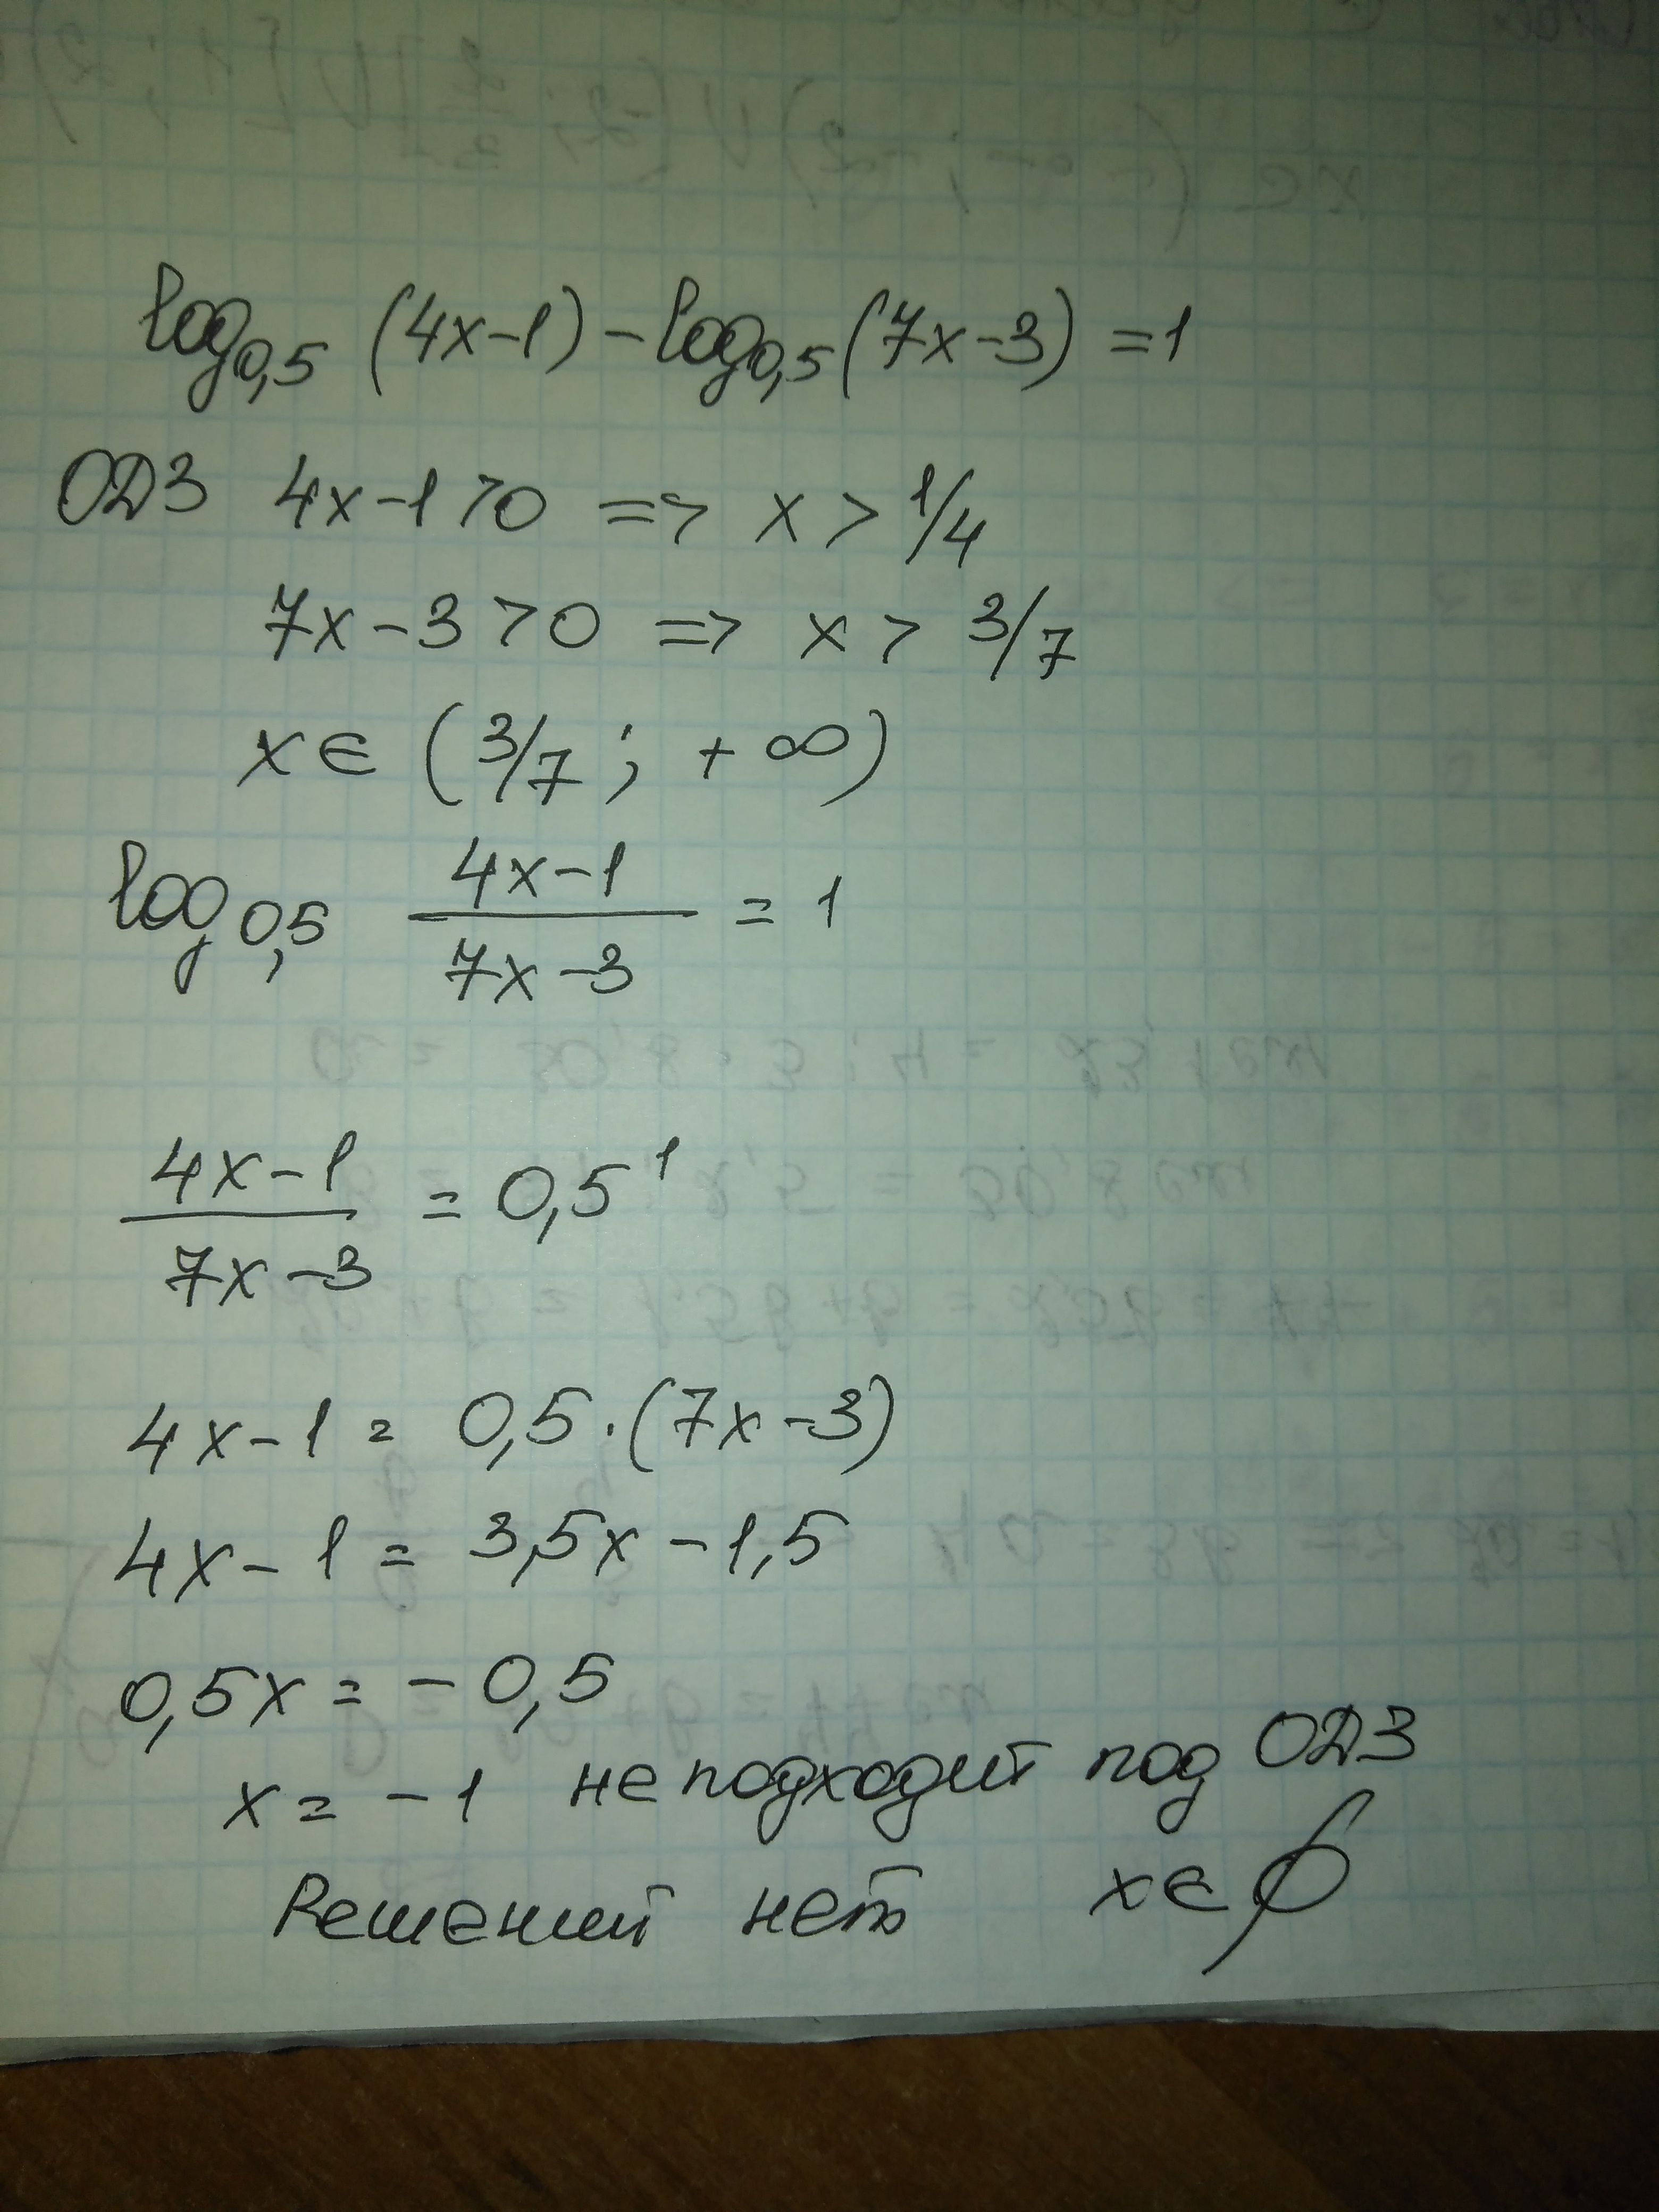 log0,5 (4x-1) - log0,5 (7x-3) = 1
ОДЗ 4x-1>0 => x > 1/4
7x-3>0 => x > 3/7
x∈ (3/7; +∞)
log0,5 (4x-1)/(7x-3) = 1
(4x-1)/(7x-3) = 0,5^1
4x-1 = 0,5·(7x-3)
4x-1 = 3,5x-1,5
0,5x = -0,5
x = -1 не подходит под ОДЗ
Решений нет x∈∅